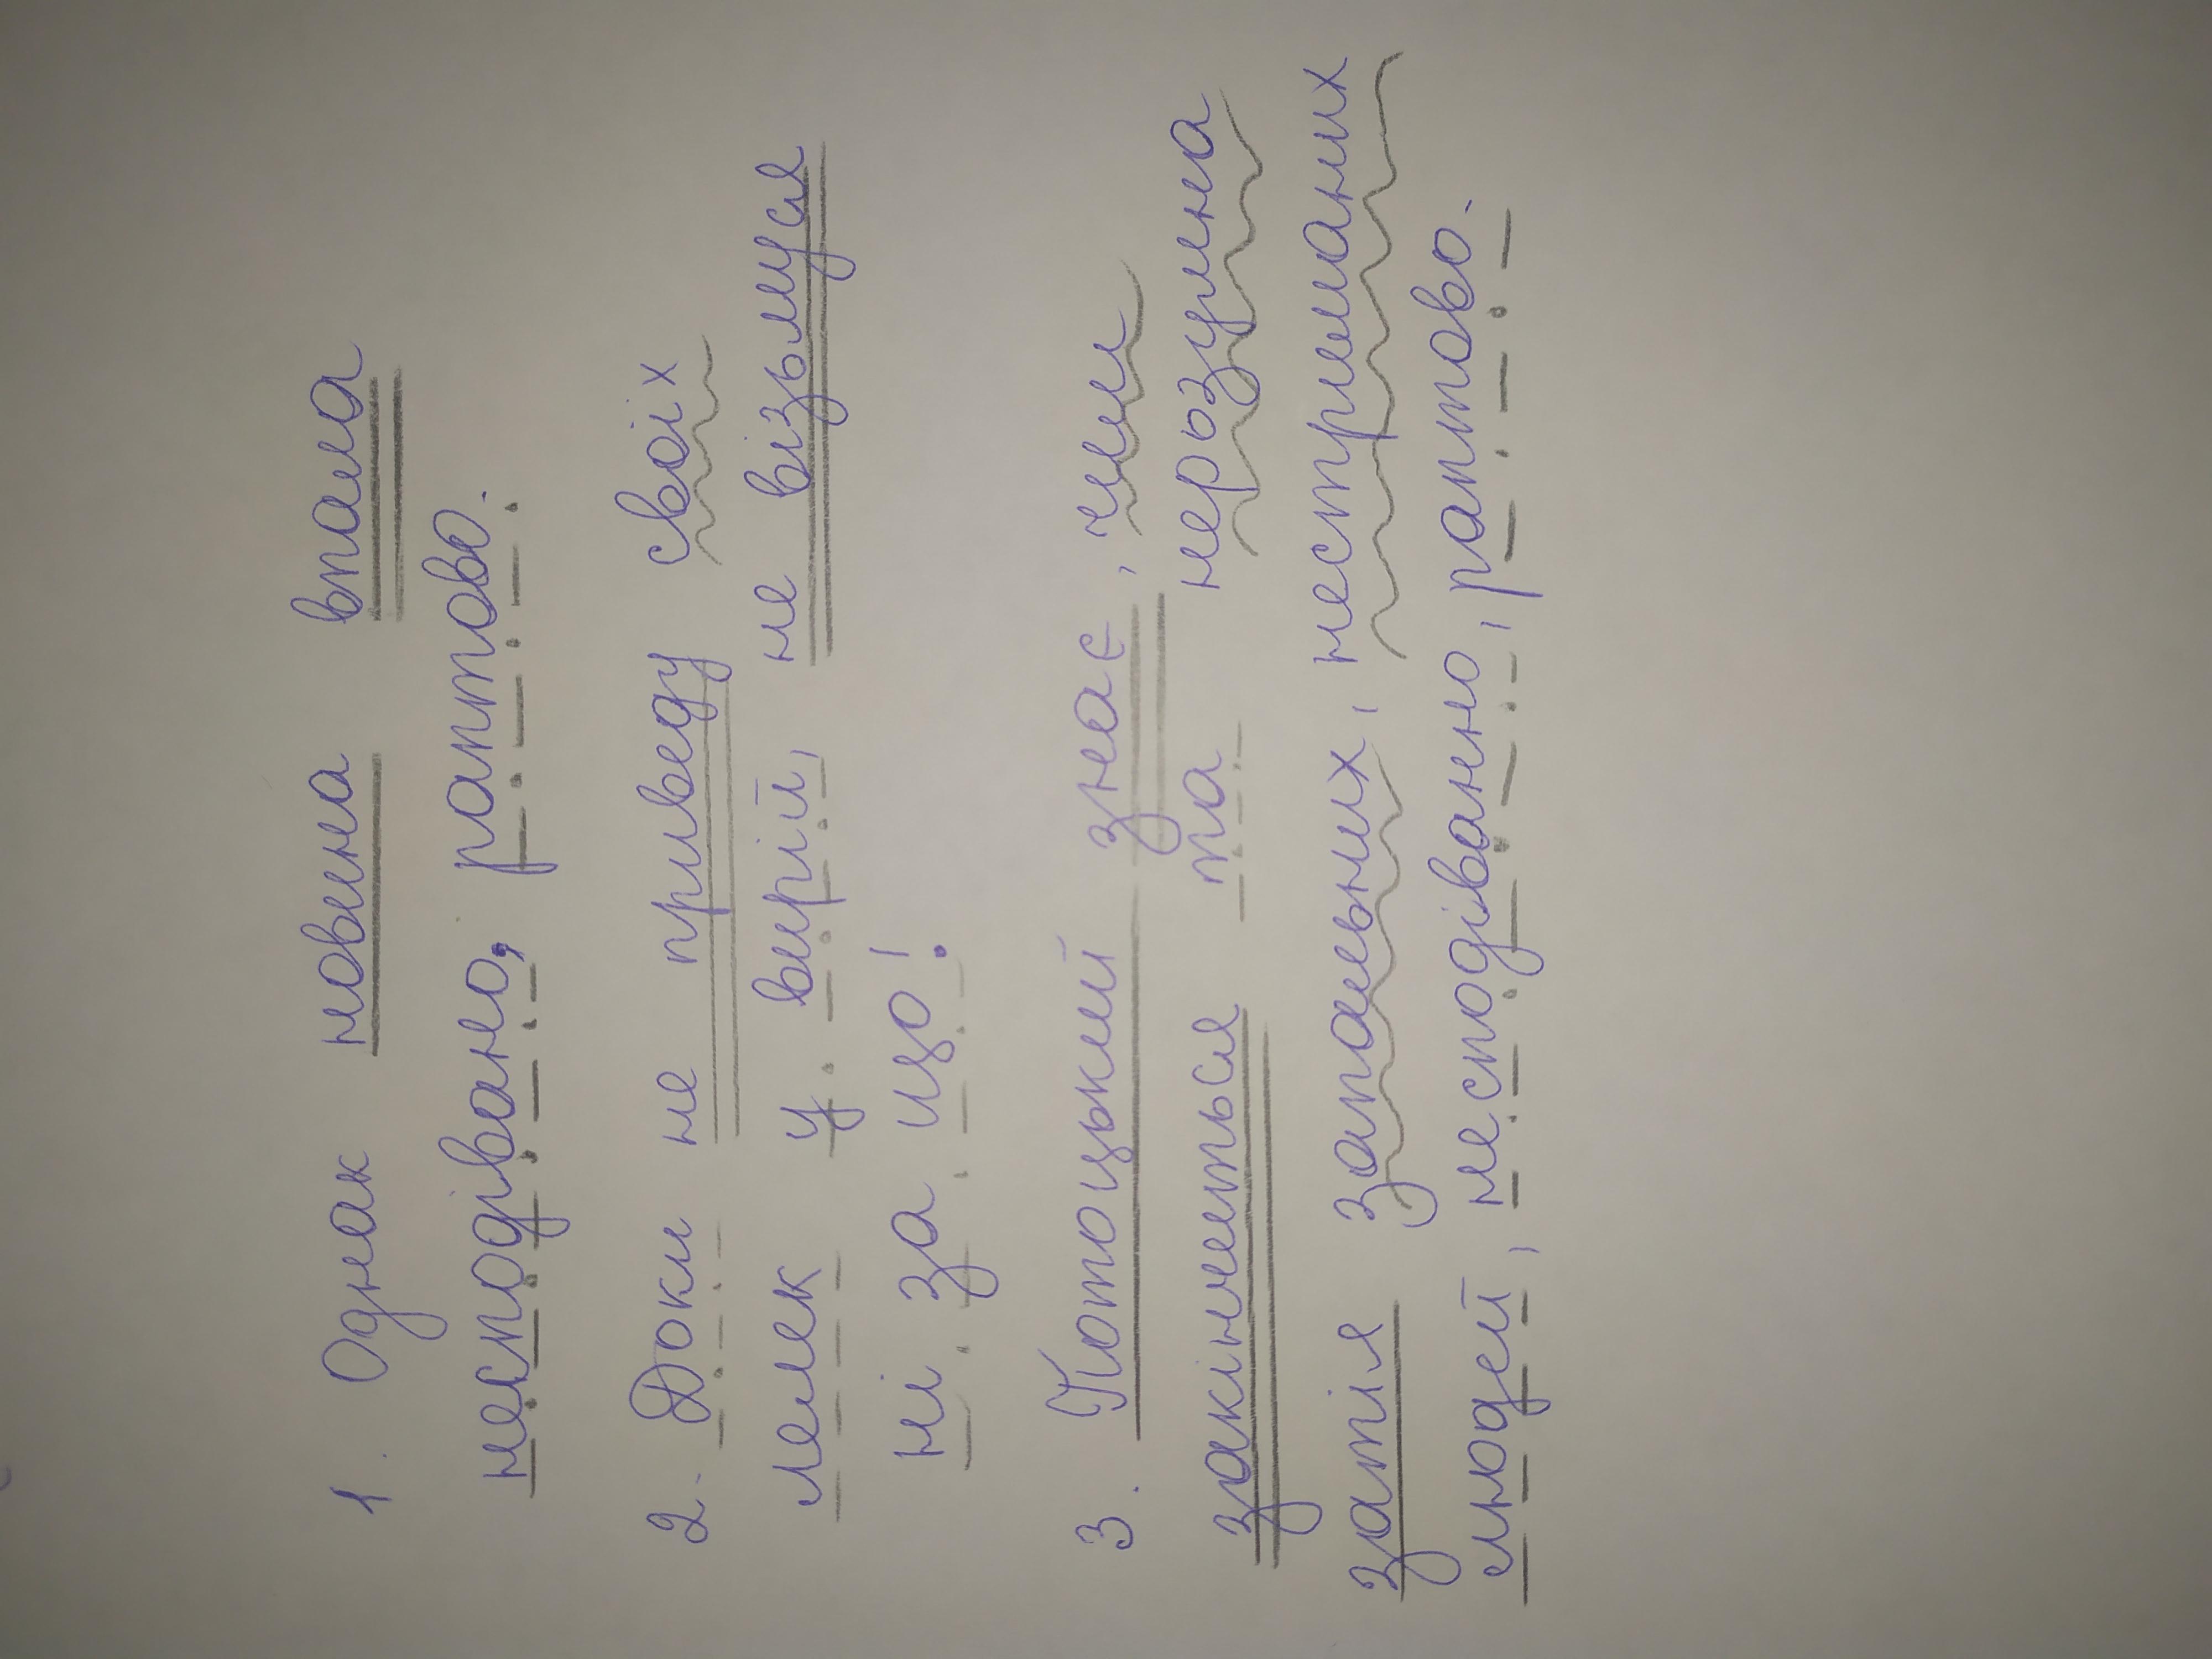 1. Однак новина впала
несподівано, раптово.
2. Доки не приведу своїх
лелек у вирій, не візьмуся
ні за що!
3. Потоцький знає, чим
закінчиться та нерозумна
затія запальних, нестриманих
людей, несподіванно, раптово.